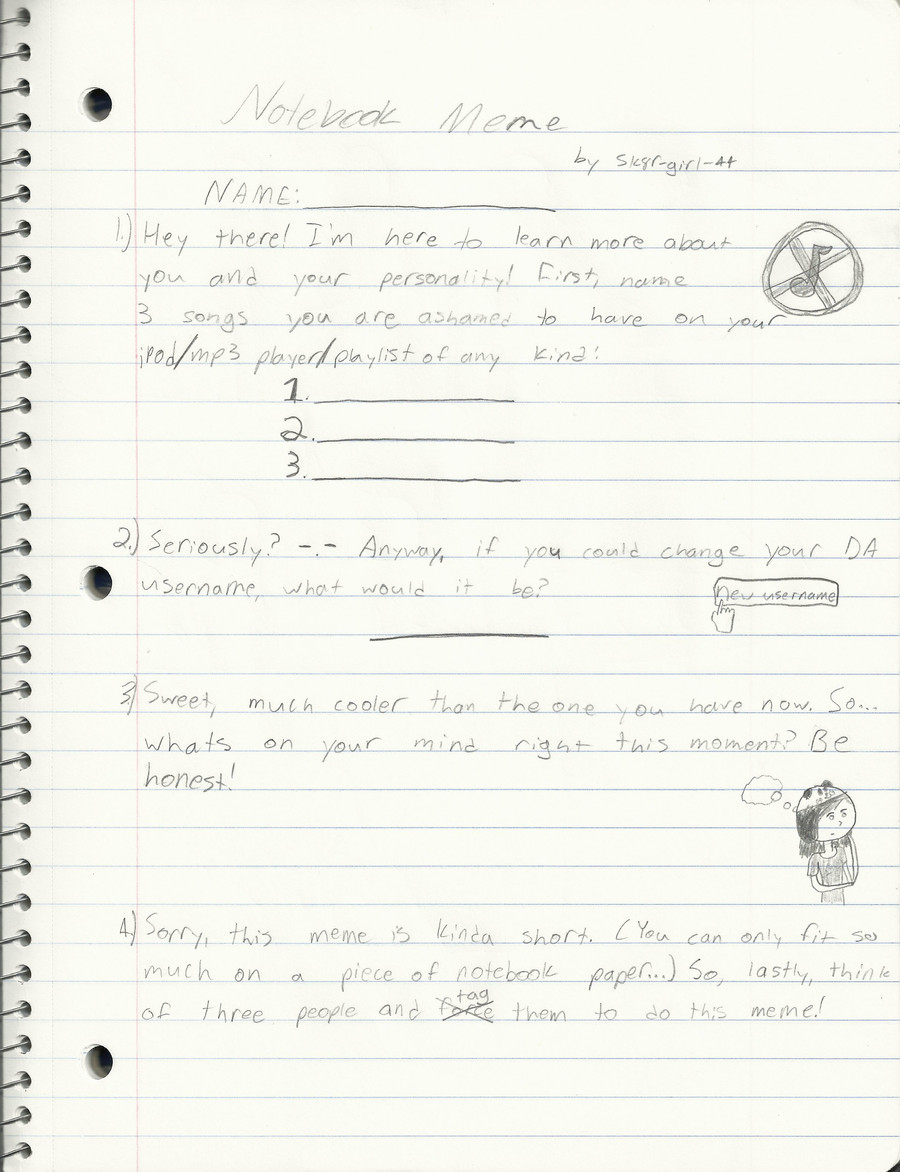 Notebook Meme
by sk8r-girl-44
NAME:
1.) Hey there! I'm here to learn more about
you and your personality! First, name
3 songs you are ashamed to have on your
iPod/mp3 player/playlist of any kind!
1.
2.
3.
2.) Seriously? -.- Anyway, if you could change your DA
username, what would it be?
new username
3.) Sweet, much cooler than the one you have now. So...
whats on your mind right this moment? Be
honest!
4.) Sorry, this meme is kinda short. (You can only fit so
much on a piece of notebook paper...) So, lastly, think
tag
of three people and force them to do this meme!